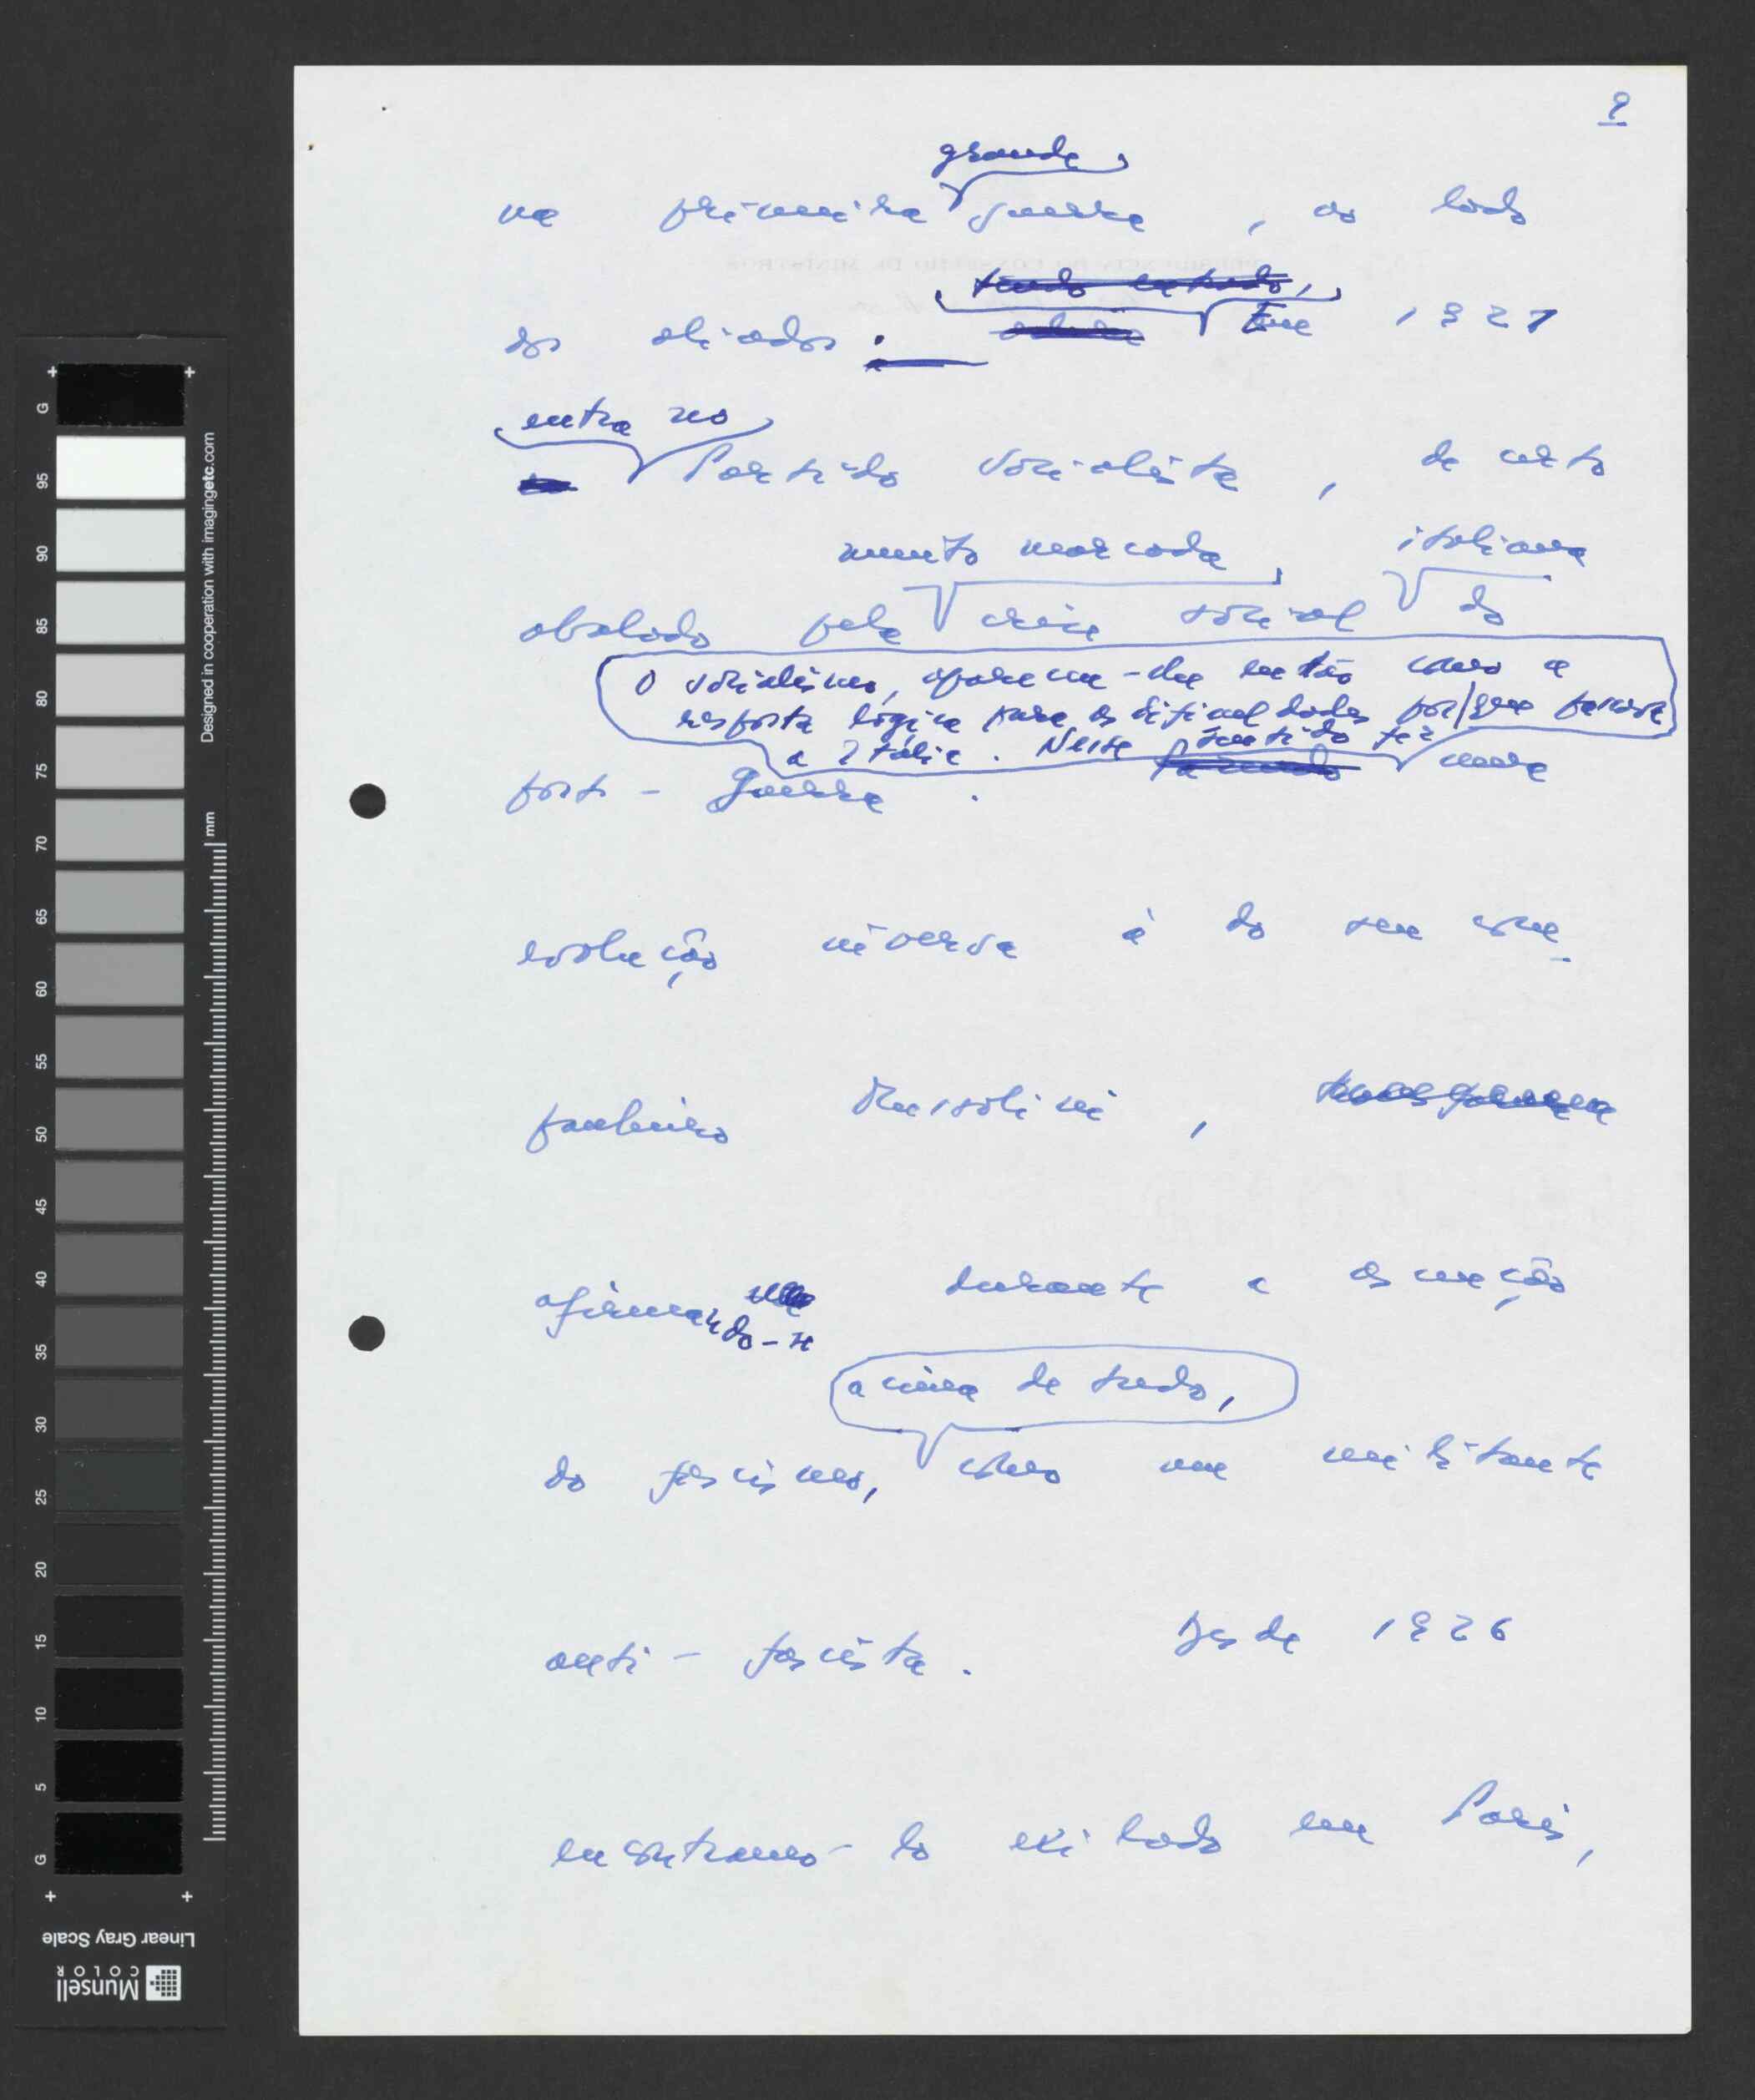 9
grande
na primeira guerra, ao lado
tendo entrado,
dos aliados. Em 1921
entra no
Partido Socialista, de certo
muito marcada italiana
abalado pela crise social do
O socialismo, aparecem-lhe então como a
resposta lógica para as dificuldades por que passava
a Itália. Nesse sentido fez
post-guerra. uma
evolução inversa à do seu com-
panheiro Mussolini,
afirmando-se durante a ascenção
acima de tudo,
do fascismo, como um militante
anti-fascista. Desde 1926
encontramo-lo exilado em Paris,
G
95
90
85
80
75
70
65
60
55
50
45
40
35
30
25
20
15
10
5
G
mm
Designed in cooperation with imagingetc.com
Linear Gray Scale
Munsell
COLOR